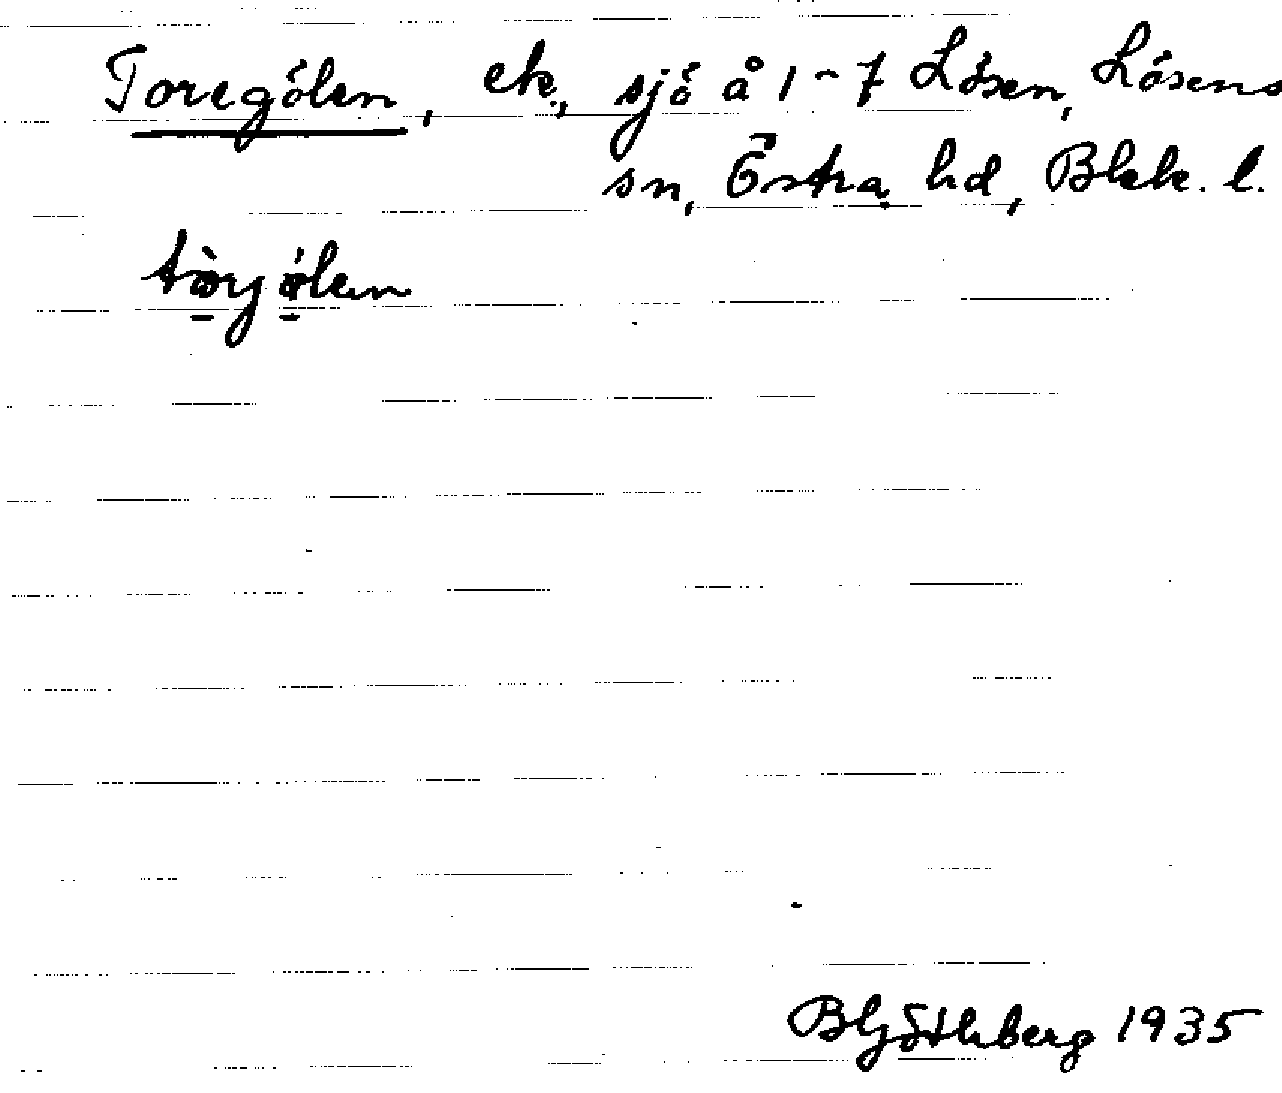 Toregölen, ek., sjö å 1-7 Lösen, Lösens
sn, Östra hd, Blek. l.
tòrjölen
BGöthberg 1935